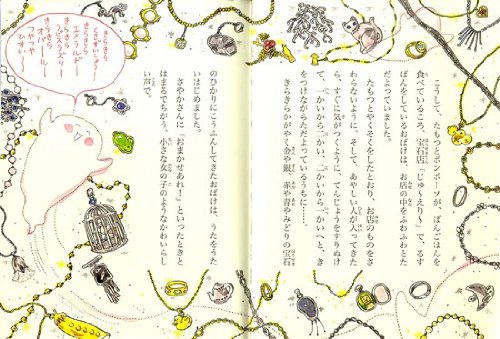 こうして、たもつと
食べているころ、宝石店「
ばんをしているおばけは、お店の中をふわふわとた
だよっていました。
たもつとやくそくをしたとおり、お店のものをさ
わらないように、そして、あやしい人が入ってきた
ら、すぐに気がつくように、てんじょうをすりぬけ
て、一かいから二かい、二かいから一かいへと、き
をつけながらただよっているうちに……。
きらきらかがやく金や銀、赤や青やみどりの宝石
のひかりにこうふんしてきたおばけは、うたをうた
いはじめました。
さやかさんに「おまかせあれ!」といったときと
はまるでちがう、小さな女の子のようなかわいらし
い声で。
きらきら
きらきら
エメラルドー
きらきら
きらきら
オパールー
つやつや
ひすいー